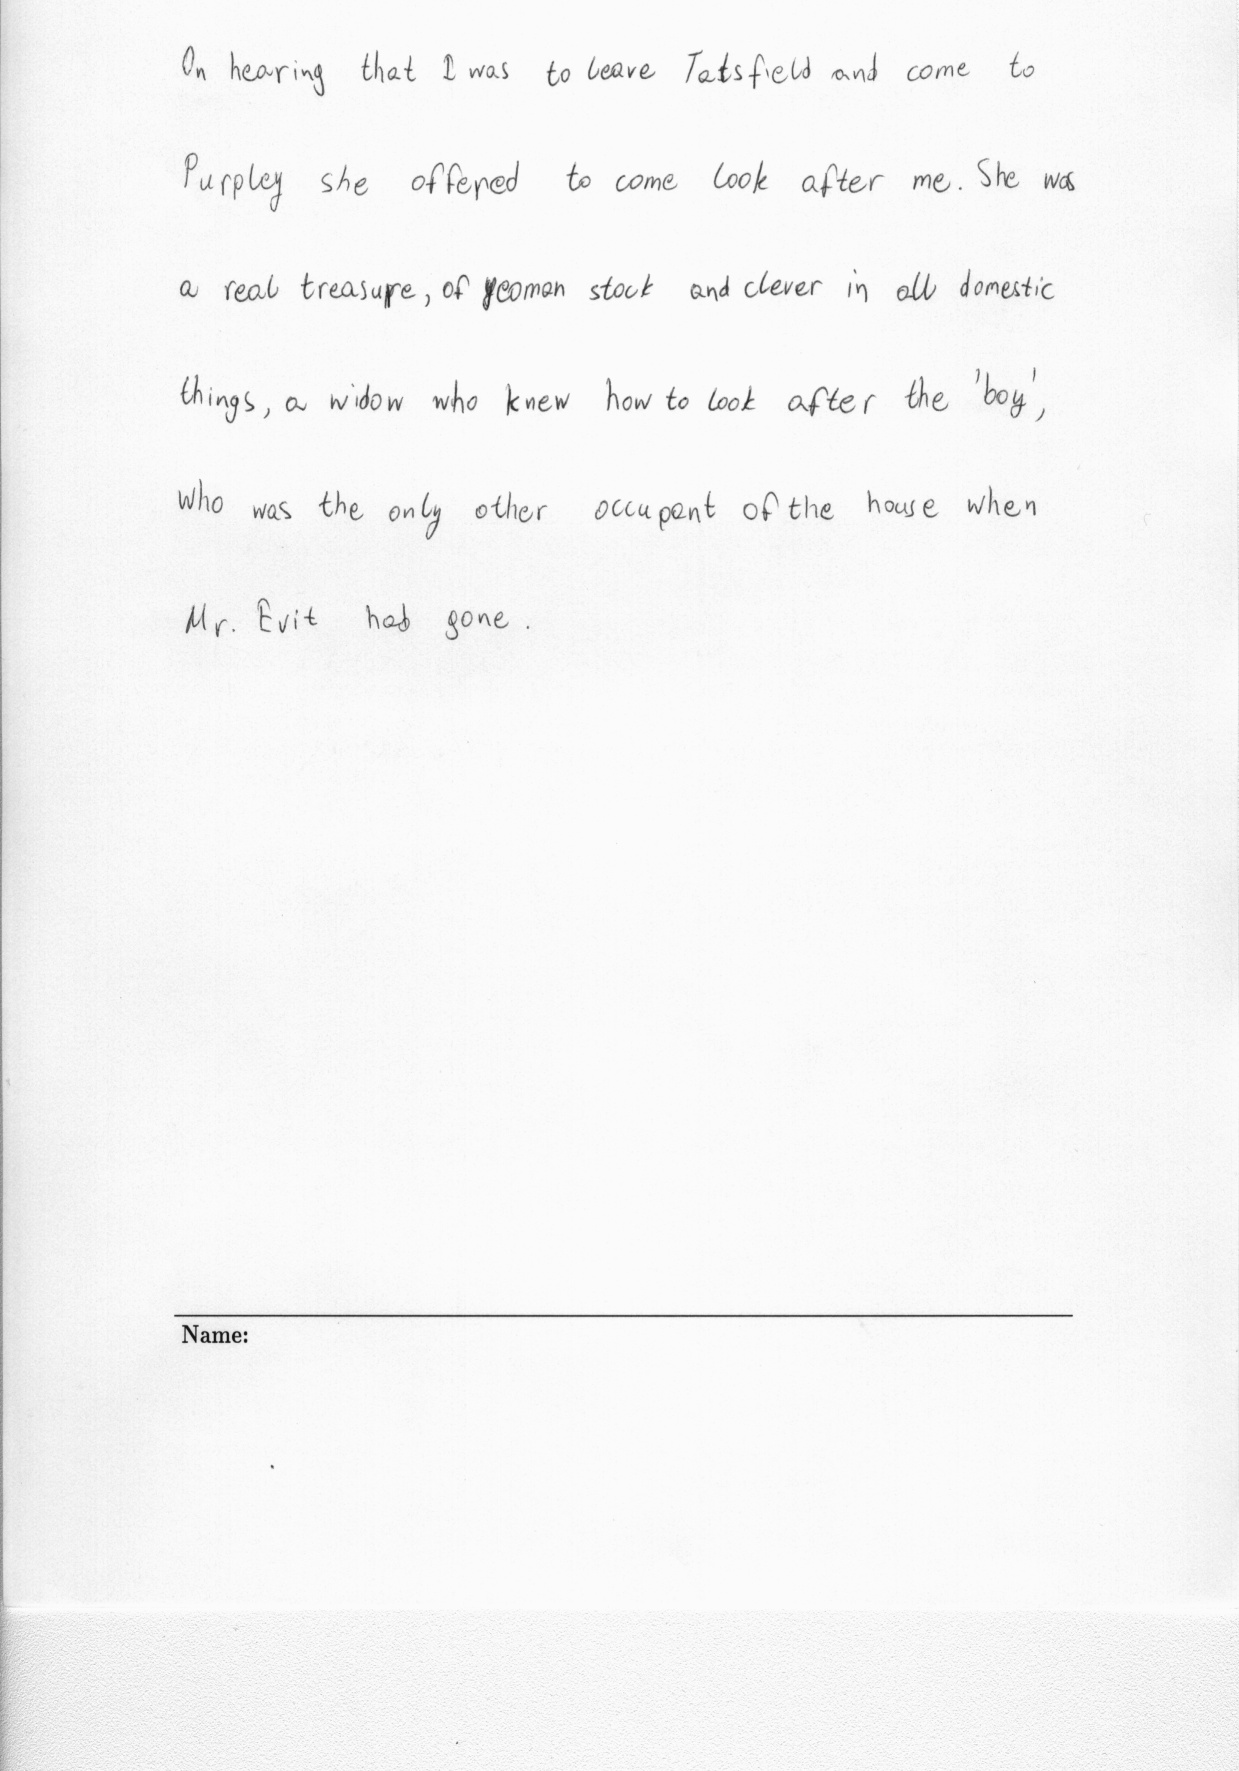 On hearing that I was to leave Tatsfield and come to
Purpley she offered to come look after me. She was
a real treasure, of yeoman stock and clever in all domestic
things, a widow who knew how to look after the 'boy',
who was the only other occupant of the house when
Mr. Evit had gone.
Name: